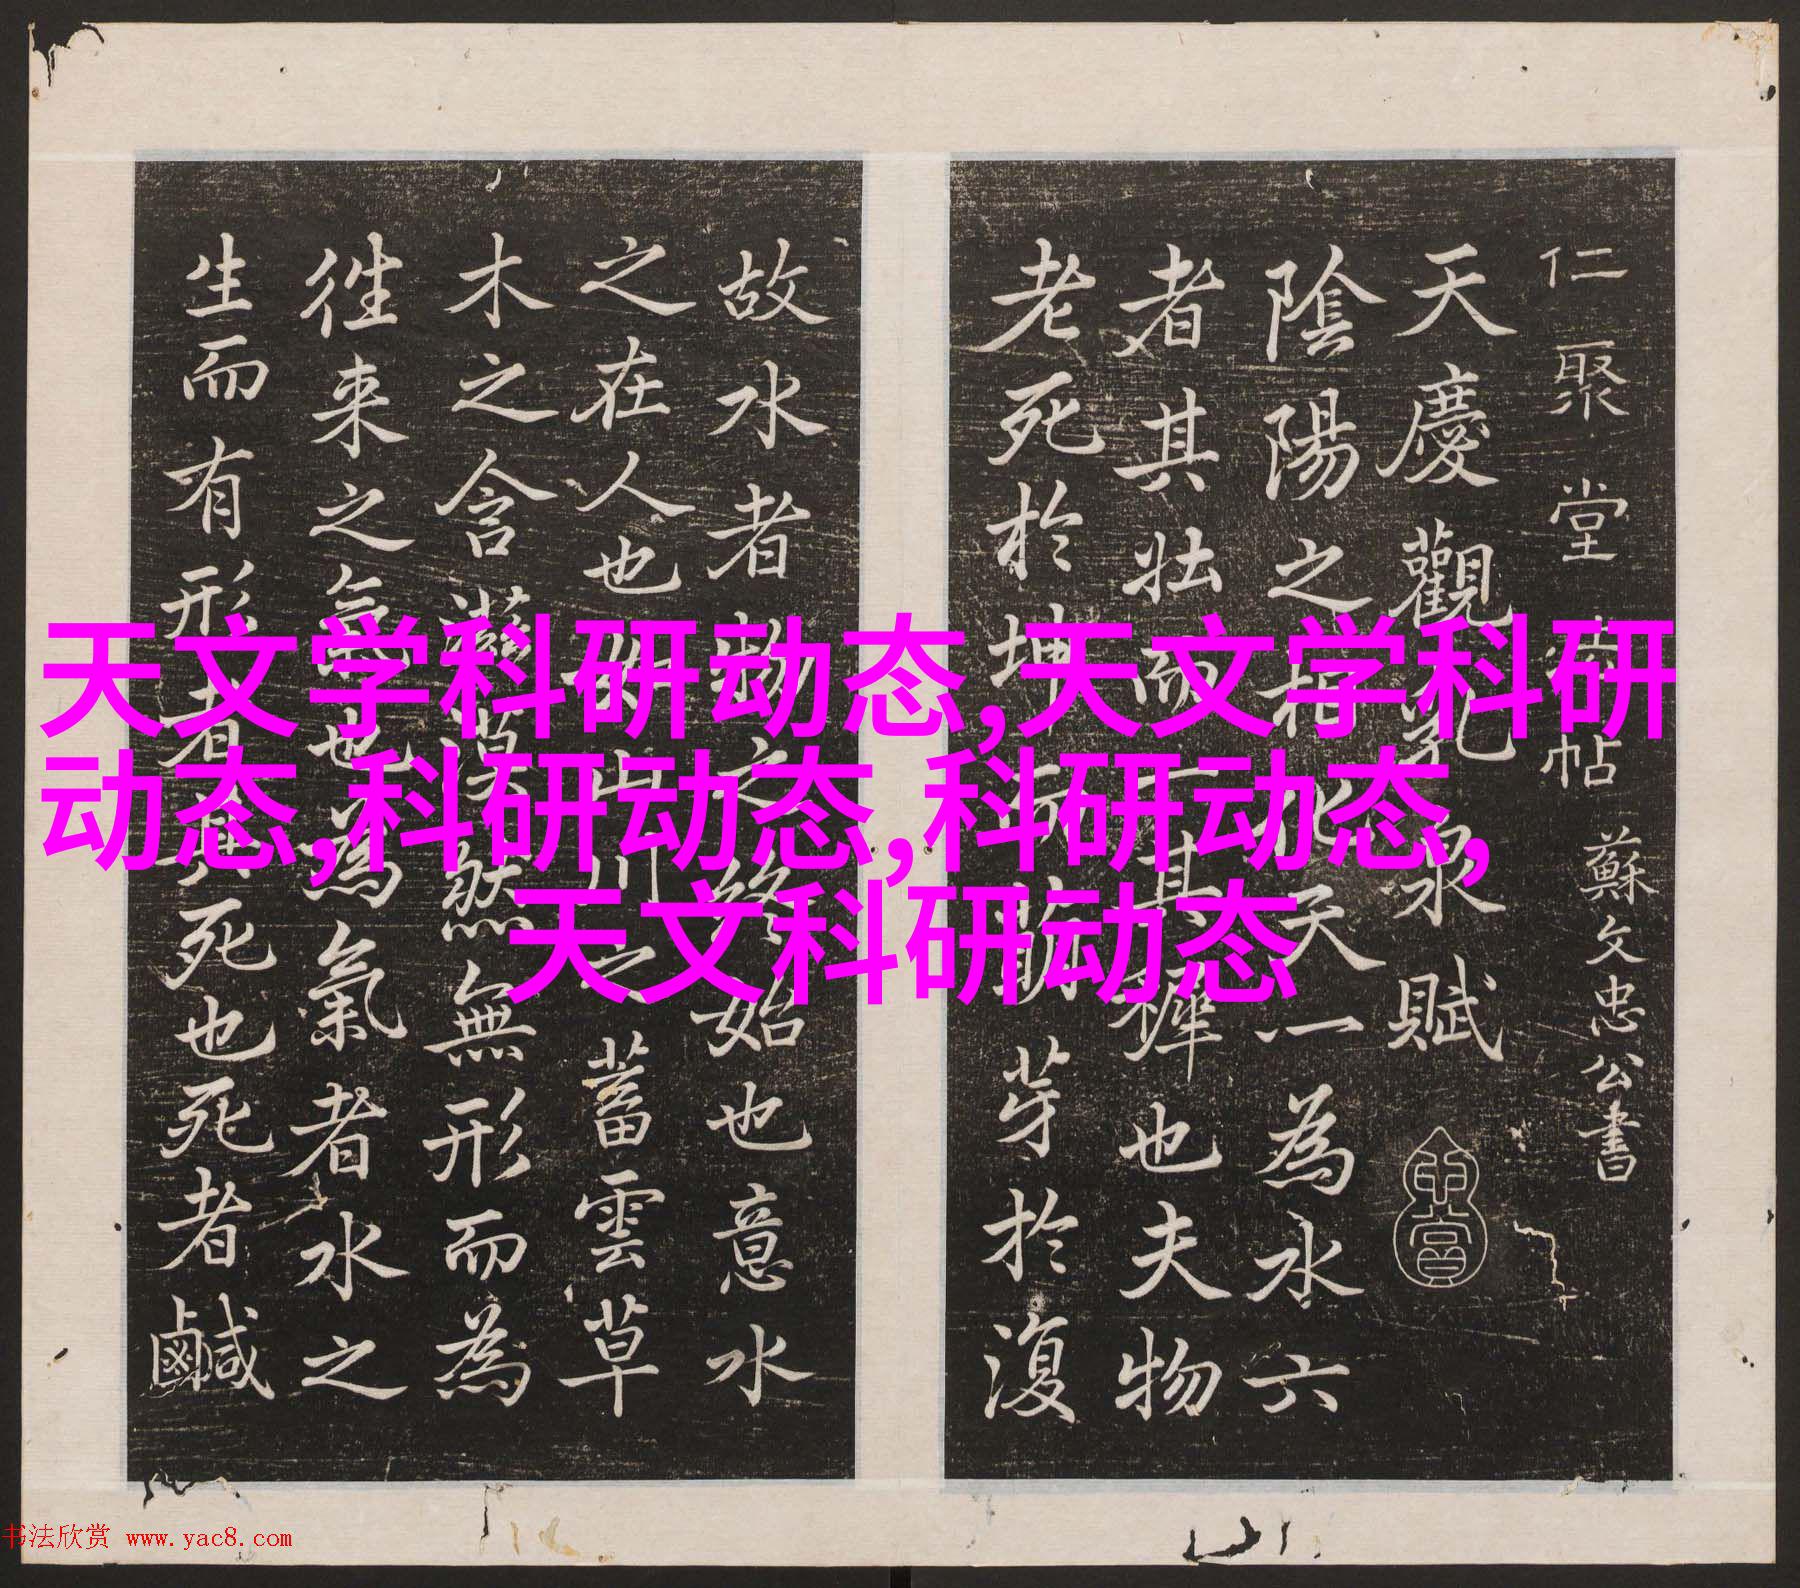 仁聚堂
帖
蘇文忠公書
天慶觀乳泉賦
陰陽之相化天一為水六
者其壯而一其穉也夫物
老死於坤而
芽於復
故水者物之終始也意水
之在人也
山川之蓄雲草
木之含滋
然無形而為
往来之氣也為氣者水之
生而有形者其死也死者鹹
天文学科研动态,天文学科研
动态,科研动态,科研动态,
天文科研动态
书法欣赏 www.yac8.com